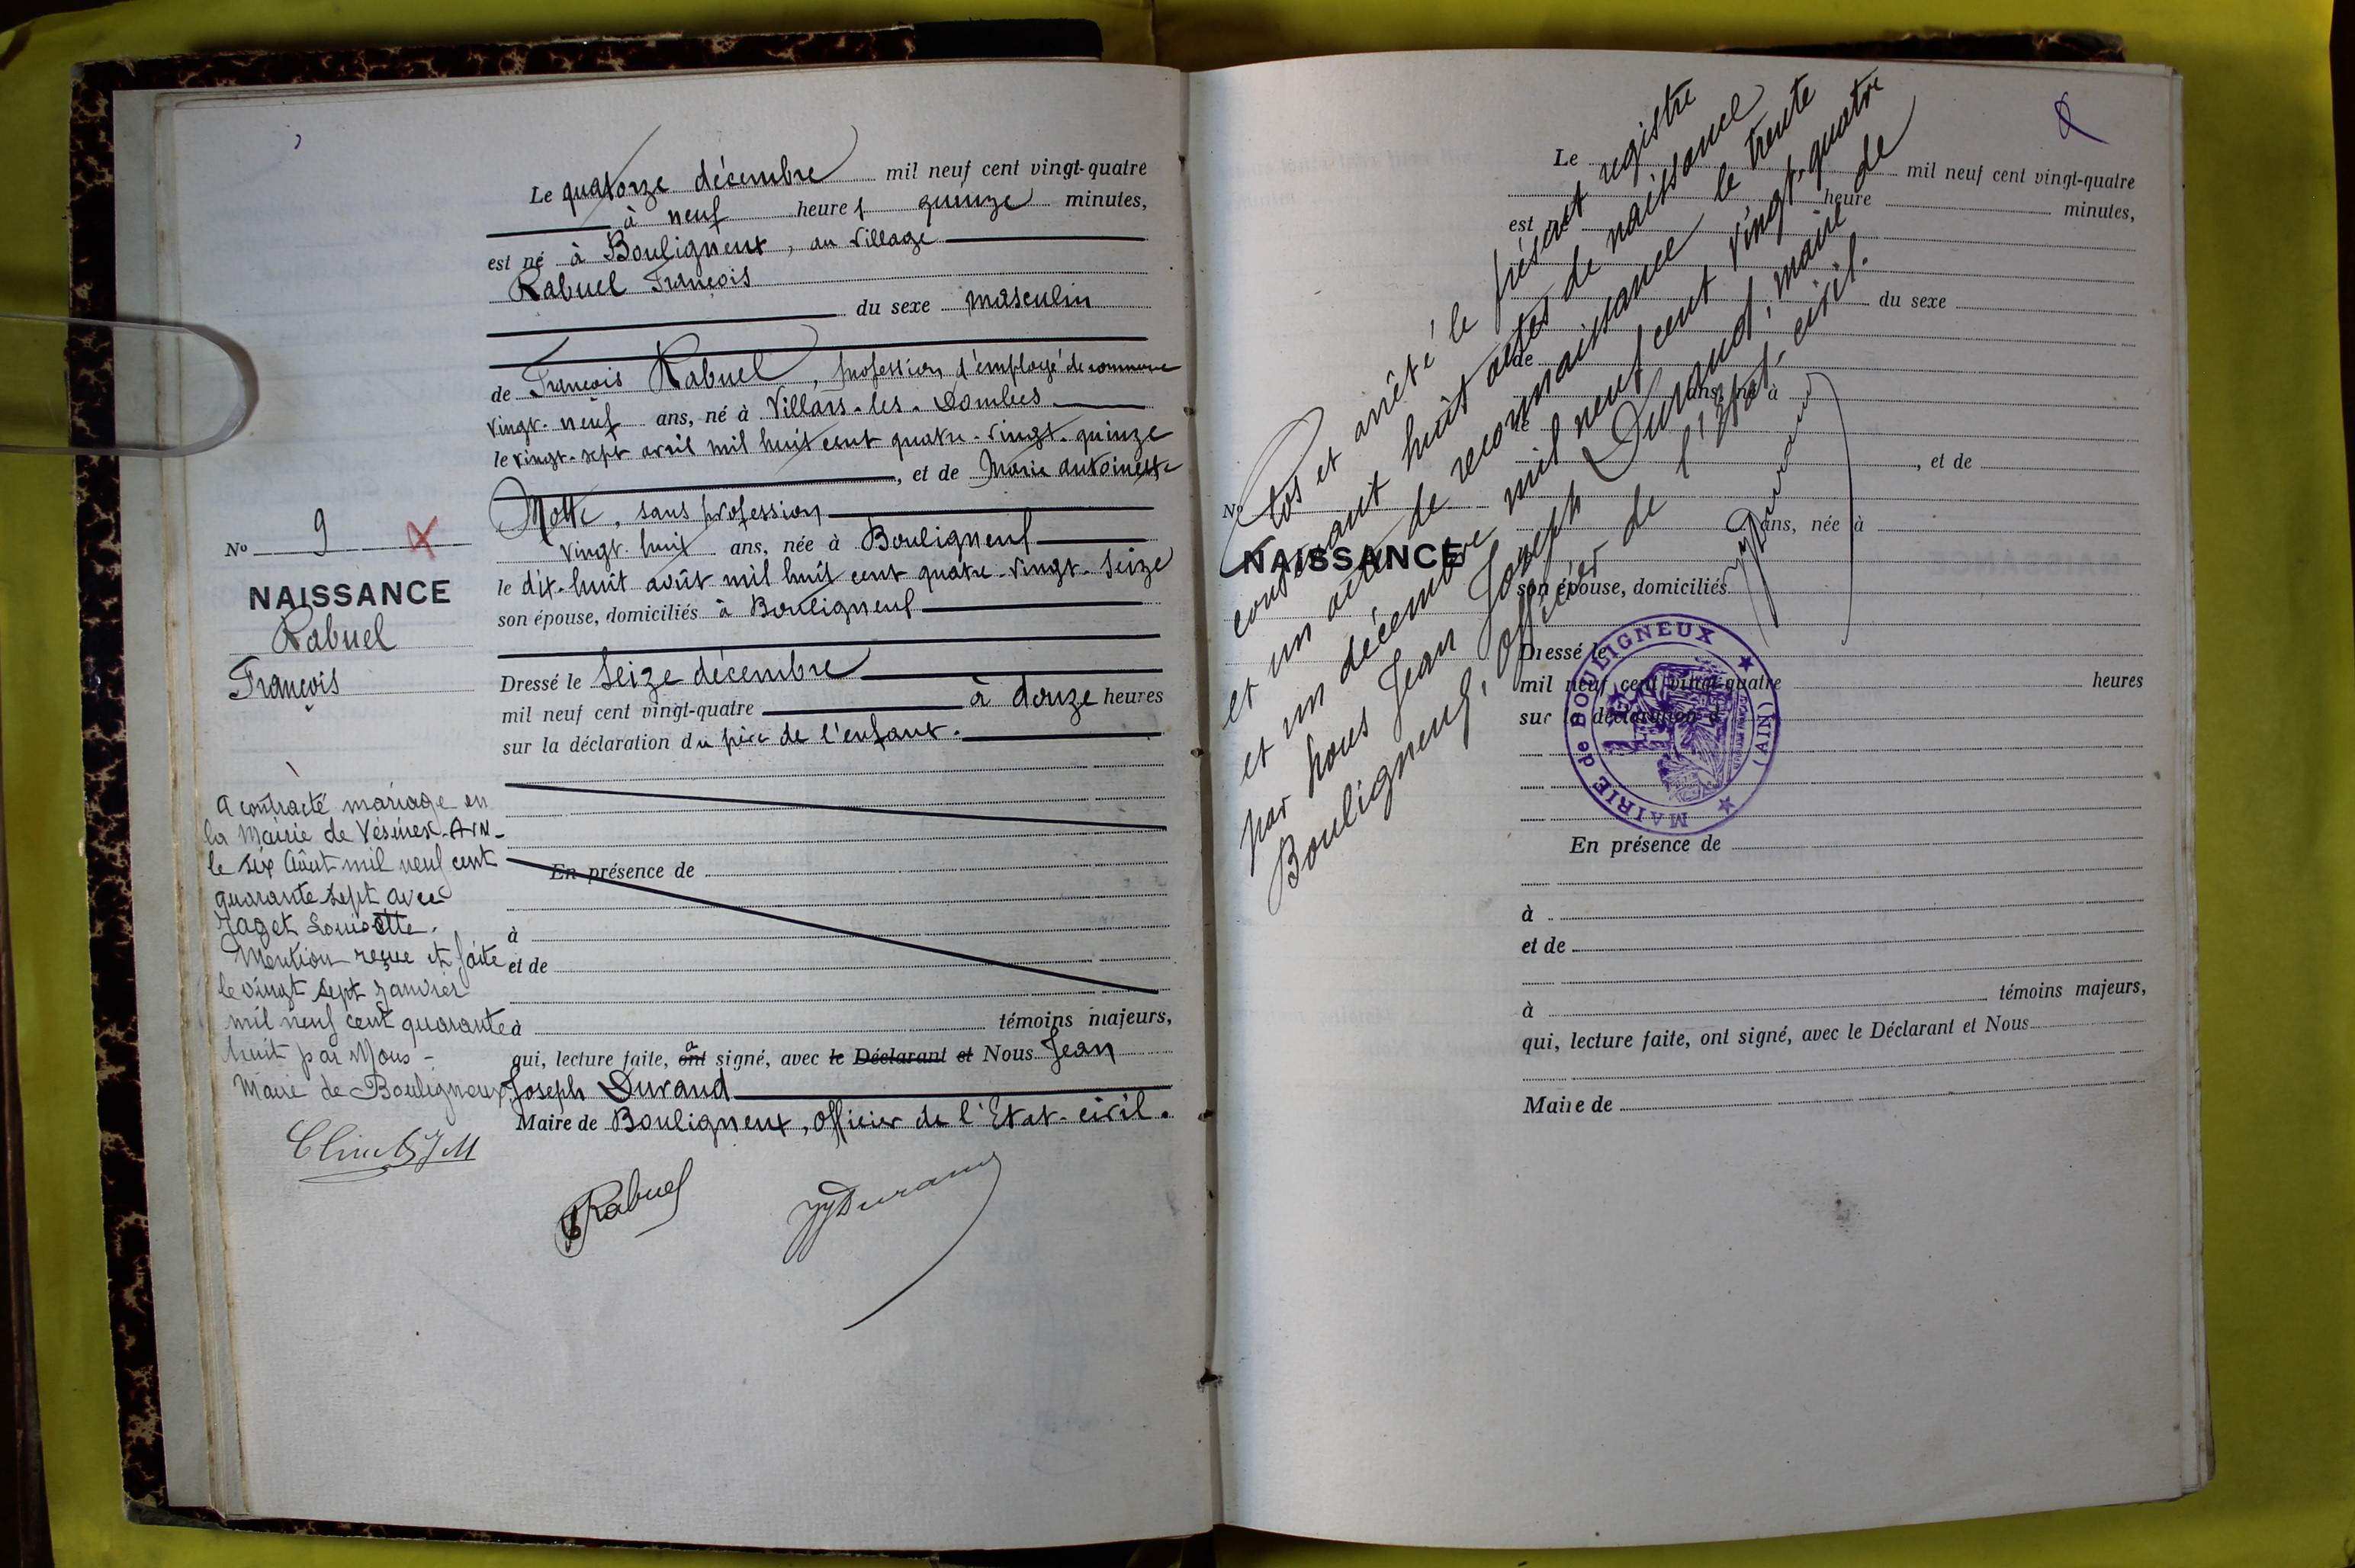 Le quatorze décembre mil neuf cent vingt-quatre
à neuf heures quinze minutes,
est né à Bouligneux, au village
Rabuel François
du sexe masculin
de François Rabuel, profession d'employé de commerce
vingt-neuf ans, né à Villars-les-Dombes
le vingt-sept avril mil huit cent quatre-vingt-quinze
, et de Marie Antoinette
Motte, sans profession
vingt-huit ans, née à Bouligneux
le dix-huit août mil huit cent quatre-vingt-seize
son épouse, domiciliés à Bouligneux
No 9
NAISSANCE
Rabuel
François
Dressé le seize décembre
mil neuf cent vingt-quatre à douze heures
sur la déclaration du père de l'enfant.
A contracté mariage en
la Mairie de AIN-
le six Août mil neuf cent
quarante sept avec
Louisette.
Mention reçue et faite
le vingt sept Janvier
mil neuf cent quarante
huit par Nous -
Maire de Bouligneux
En présence de
à
et de
à témoins majeurs,
qui, lecture faite, ont a signé, avec le Déclarant et Nous Jean
Joseph Durand
Maire de Bouligneux, Officier de l'Etat-civil.
Rabuel
JJDurand
Clos et arrêté le présent registre
contenant huit actes de naissance
et un acte de reconnaissance le trente
et un décembre mil neuf cent vingt-quatre
par nous Jean Joseph Durand, maire de
Bouligneux, Officier de l'Etat-civil.
JJDurand
Le mil neuf cent vingt-quatre
heure minutes,
est
du sexe
de
ans, né à
le
, et de
No
NAISSANCE
ans, née à
son épouse, domiciliés
Dressé le
mil neuf cent vingt-quatre heures
sur la déclaration d
MAIRIE de BOULIGNEUX (AIN)
En présence de
à
et de
à témoins majeurs,
qui, lecture faite, ont signé, avec le Déclarant et Nous
Maire de